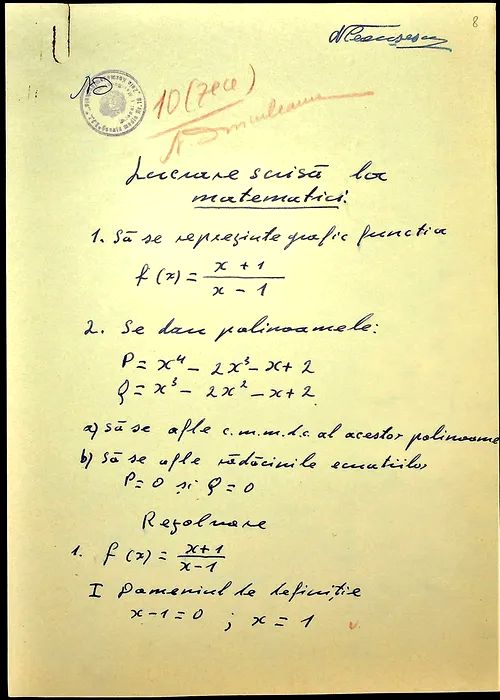 8
NCeaușescu
10 (zece)
Lucrare scrisă la
matematici:
1. Să se reprezinte grafic funcția
f(x) = x + 1 / x - 1
2. Se dau polinoamele:
P = x⁴ - 2x³ - x + 2
Q = x³ - 2x² - x + 2
a) să se afle c.m.m.d.c. al acestor polinoame
b) să se afle rădăcinile ecuațiilor
P = 0 și Q = 0
Rezolvare
1. f(x) = x+1 / x-1
I Domeniul de definiție
x - 1 = 0 ; x = 1